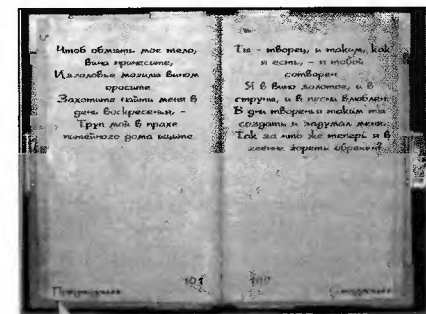 Чтоб обмыть мое тело,
Вина принесите,
Изголовье могилы вином
оросите.
Захотите найти меня в
день воскресенья, –
Труп мой в прахе
питейного дома ищите.
Ты – творец, и таким, как
я есть, – я тобой
сотворен.
Я в вино золотое, и в
струны, и в песни влюблен.
В дни творенья таким ты
создать и задумал меня.
Так за что же теперь я в
геенне гореть обречен?
101